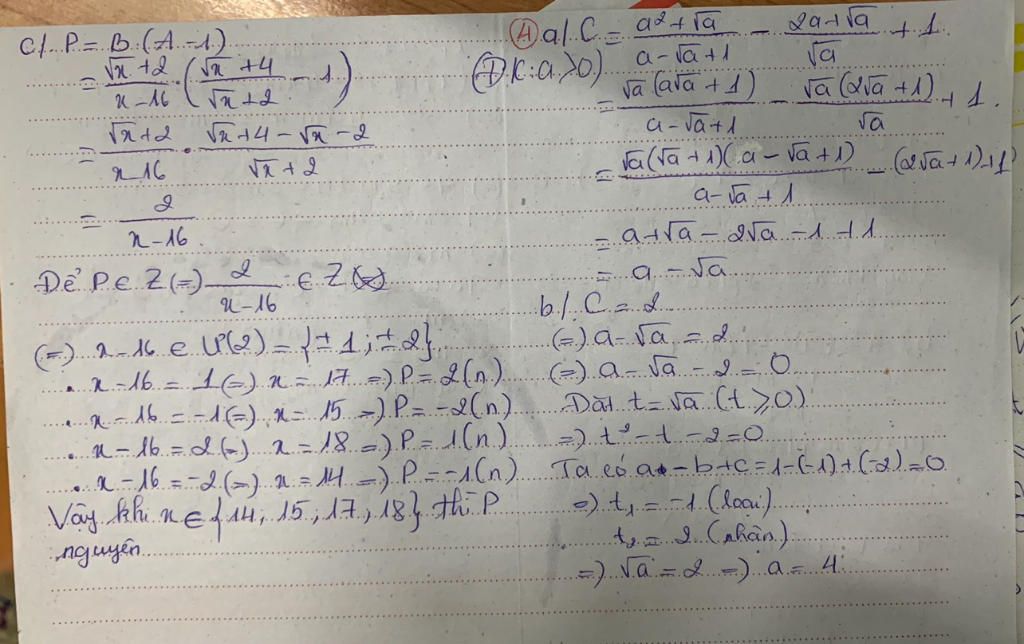 c/. P = B.(A - 1)
= (√x + 2)/(x - 16) . ((√x + 4)/(√x + 2) - 1)
= (√x + 2)/(x - 16) . (√x + 4 - √x - 2)/(√x + 2)
= 2/(x - 16)
Để P ∈ Z (=) 2/(x - 16) ∈ Z
(=) x - 16 ∈ Ư(2) = {± 1 ; ± 2}
. x - 16 = 1 (=) x = 17 =) P = 2 (n)
. x - 16 = -1 (=) x = 15 =) P = -2 (n)
. x - 16 = 2 (=) x = 18 =) P = 1 (n)
. x - 16 = -2 (=) x = 14 =) P = -1 (n)
Vậy khi x ∈ {14, 15, 17, 18} thì P
nguyên
4 a/. C = (a² + √a)/(a - √a + 1) - (2a + √a)/√a + 1.
(ĐK: a > 0)
= √a(a√a + 1)/(a - √a + 1) - √a(2√a + 1)/√a + 1.
= √a(√a + 1)(a - √a + 1)/(a - √a + 1) - (2√a + 1) + 1
= a + √a - 2√a - 1 + 1
= a - √a
b/. C = 2
(=) a - √a = 2
(=) a - √a - 2 = 0
Đặt t = √a (t ⩾ 0)
=) t² - t - 2 = 0
Ta có a - b + c = 1 - (-1) + (-2) = 0
=) t₁ = -1 (loại)
t₂ = 2 (nhận)
=) √a = 2 =) a = 4